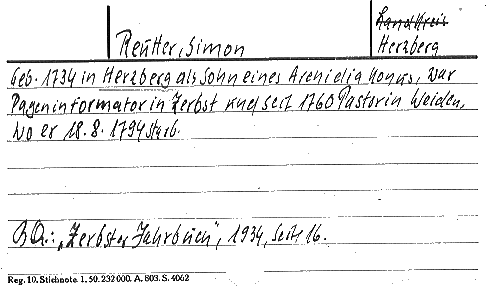 Landkreis
Reutter, Simon
Herzberg
geb. 1734 in Herzberg als Sohn eines Archidiakonus, war
Pageninformator in Zerbst und seit 1760 Pastor in Weiden,
wo er 18. 8. 1794 starb.
B Qu.: „Zerbster Jahrbuch", 1934, Seite 16.
Reg. 10. Stichnote. 1. 50. 232 000. A. 803. S. 4062